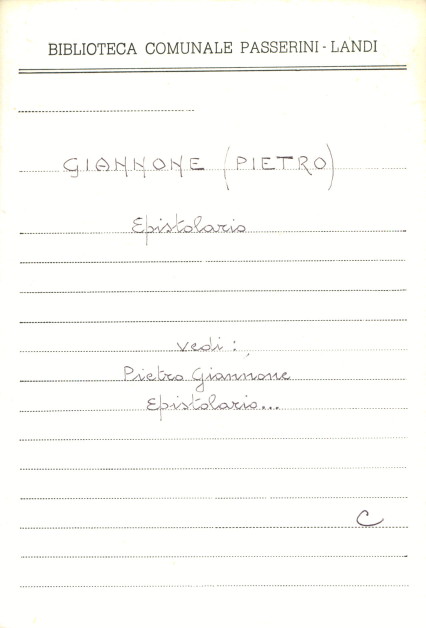 BIBLIOTECA COMUNALE PASSERINI - LANDI
GIANNONE (PIETRO)
Epistolario
vedi:
Pietro Giannone
Epistolario...
C